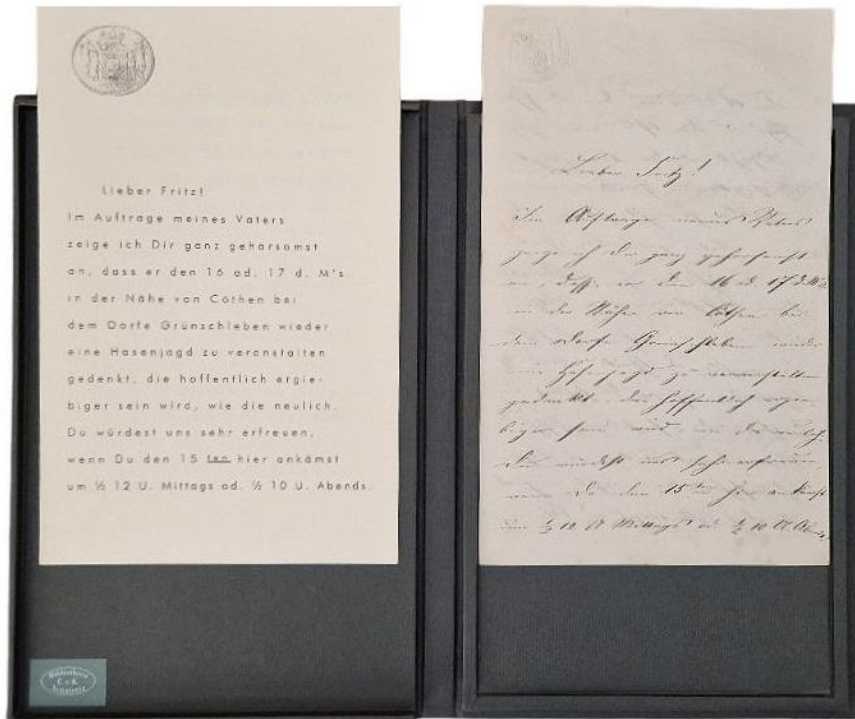 Lieber Fritz!
Im Auftrage meines Vaters
zeige ich Dir ganz gehorsamst
an, dass er den 16 od. 17 d. M's.
in der Nähe von Cöthen bei
dem Dorfe Grünschleben wieder
eine Hasenjagd zu veranstalten
gedenkt, die hoffentlich ergie-
biger sein wird, wie die neulich.
Du würdest uns sehr erfreuen,
wenn Du den 15 ten hier ankämst
um ½ 12 U. Mittags od. ½ 10 U. Abends.
Bibliothek
Lieber Fritz!
Im Auftrage meines Vaters
zeige ich Dir ganz gehorsamst
an, dass er den 16 od. 17 d. M's.
in der Nähe von Cöthen bei
dem Dorfe Grünschleben wieder
eine Hasenjagd zu veranstalten
gedenkt, die hoffentlich ergie-
biger sein wird, wie die neulich.
Du würdest uns sehr erfreuen,
wenn Du den 15 ten hier ankämst
um ½ 12 U. Mittags od. ½ 10 U. Abends